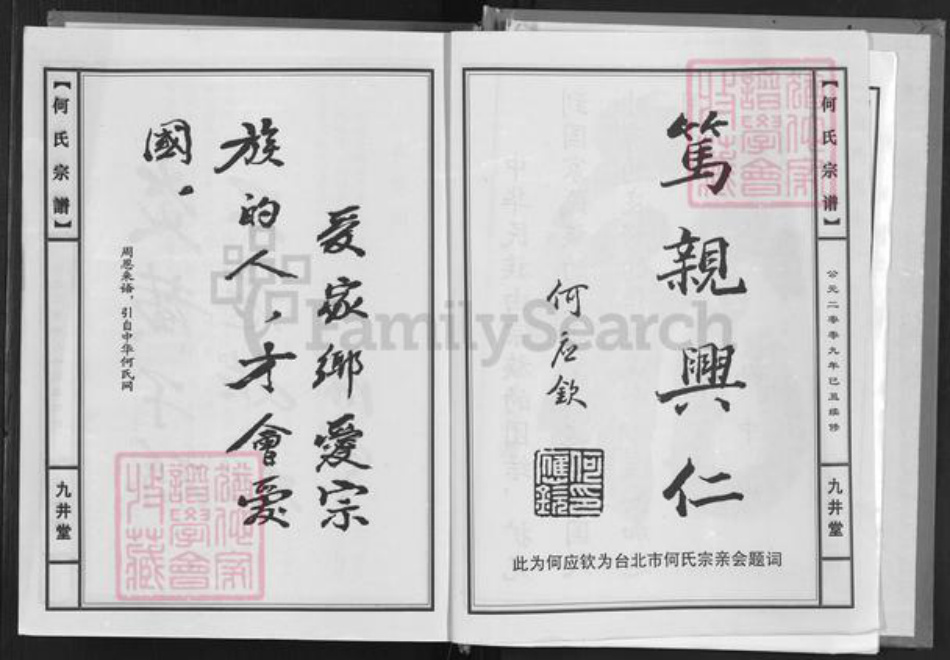 【何氏宗谱】
公元二零零九年己丑续修
九井堂
篤親興仁
何应欽
何應欽印
此为何应钦为台北市何氏宗亲会题词
【何氏宗譜】
九井堂
爱家鄉愛宗
族的人，才會愛
國。
周恩来语，引自中华何氏网
FamilySearch